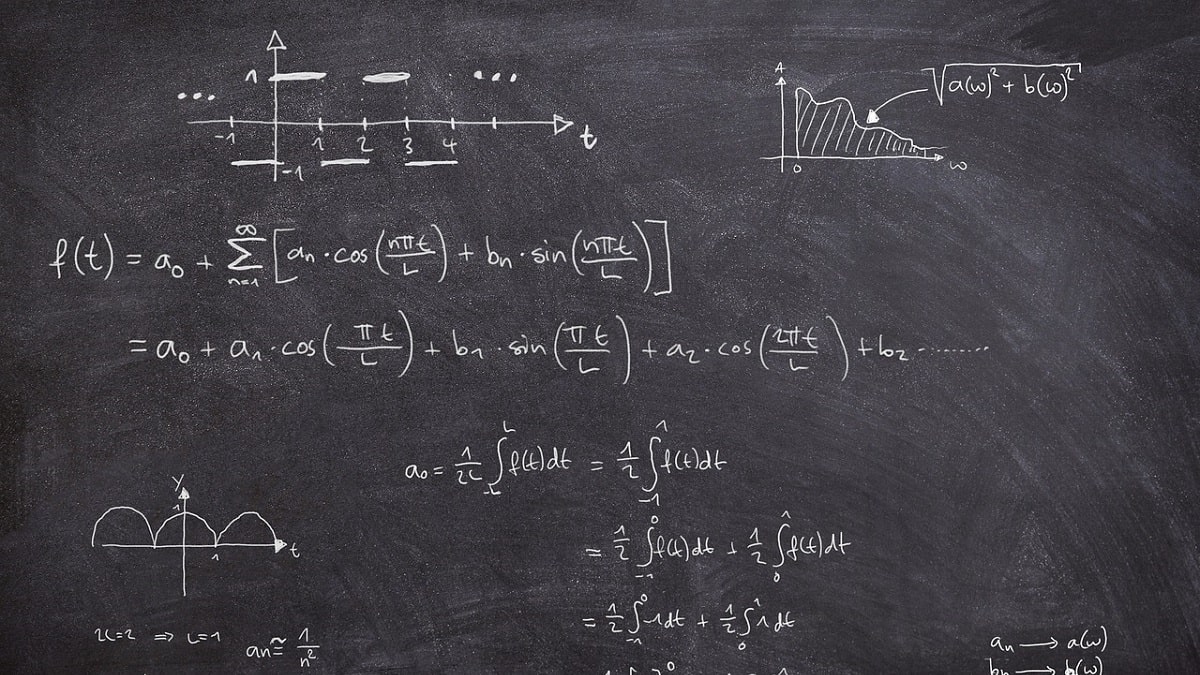 1
...
...
-1 1 2 3 4 t
-1
A
√(a(ω)² + b(ω)²)
0 ω
f(t) = a₀ + ∑ₙ₌₁^∞ [aₙ · cos(nπt/L) + bₙ · sin(nπt/L)]
= a₀ + a₁ · cos(πt/L) + b₁ · sin(πt/L) + a₂ · cos(2πt/L) + b₂ ........
a₀ = 1/2L ∫₋L^L f(t)dt = 1/2 ∫₋₁^1 f(t)dt
y
1
1 t
= 1/2 ∫₋₁^0 f(t)dt + 1/2 ∫₀^1 f(t)dt
= 1/2 ∫₋₁^0 -1dt + 1/2 ∫₀^1 1dt
2L=2 ⇒ L=1 aₙ ≅ 1/n²
aₙ → a(ω)
bₙ → b(ω)